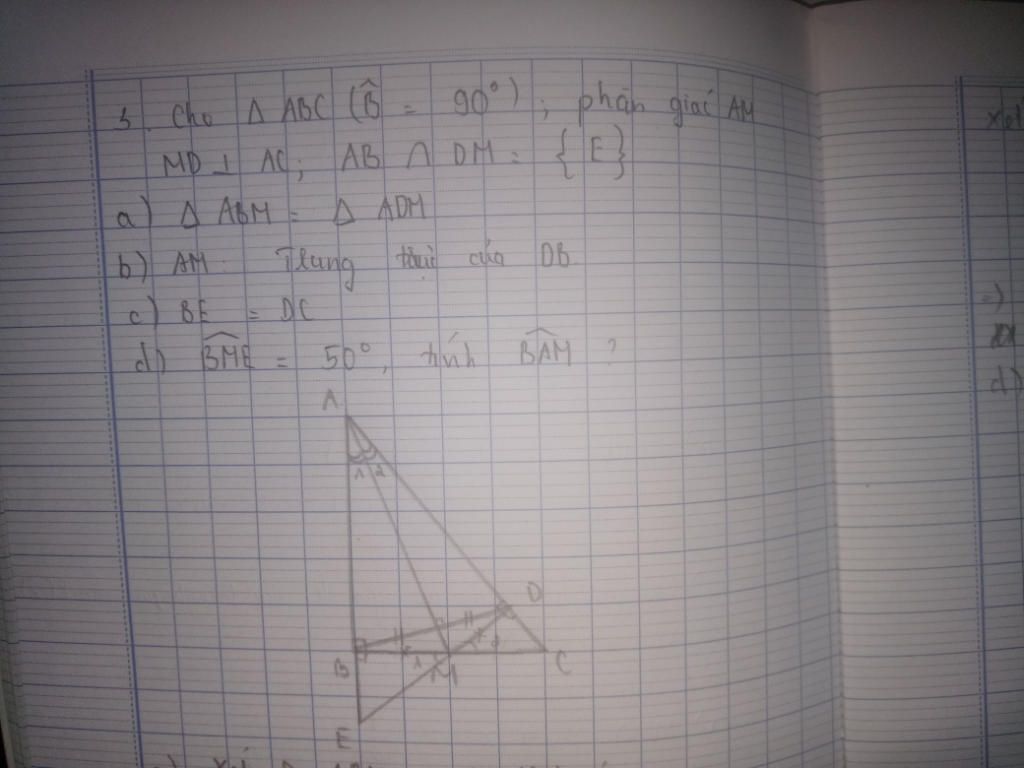 3. Cho Δ ABC (B̂ = 90°); phân giác AM
MD ⊥ AC; AB ∩ DM = {E}
a) Δ ABM = Δ ADM
b) AM: Trung trực của DB.
c) BE = DC
d) B̂ME = 50°, tính B̂AM ?
A
1 2
D
B 1 M C
E
d)